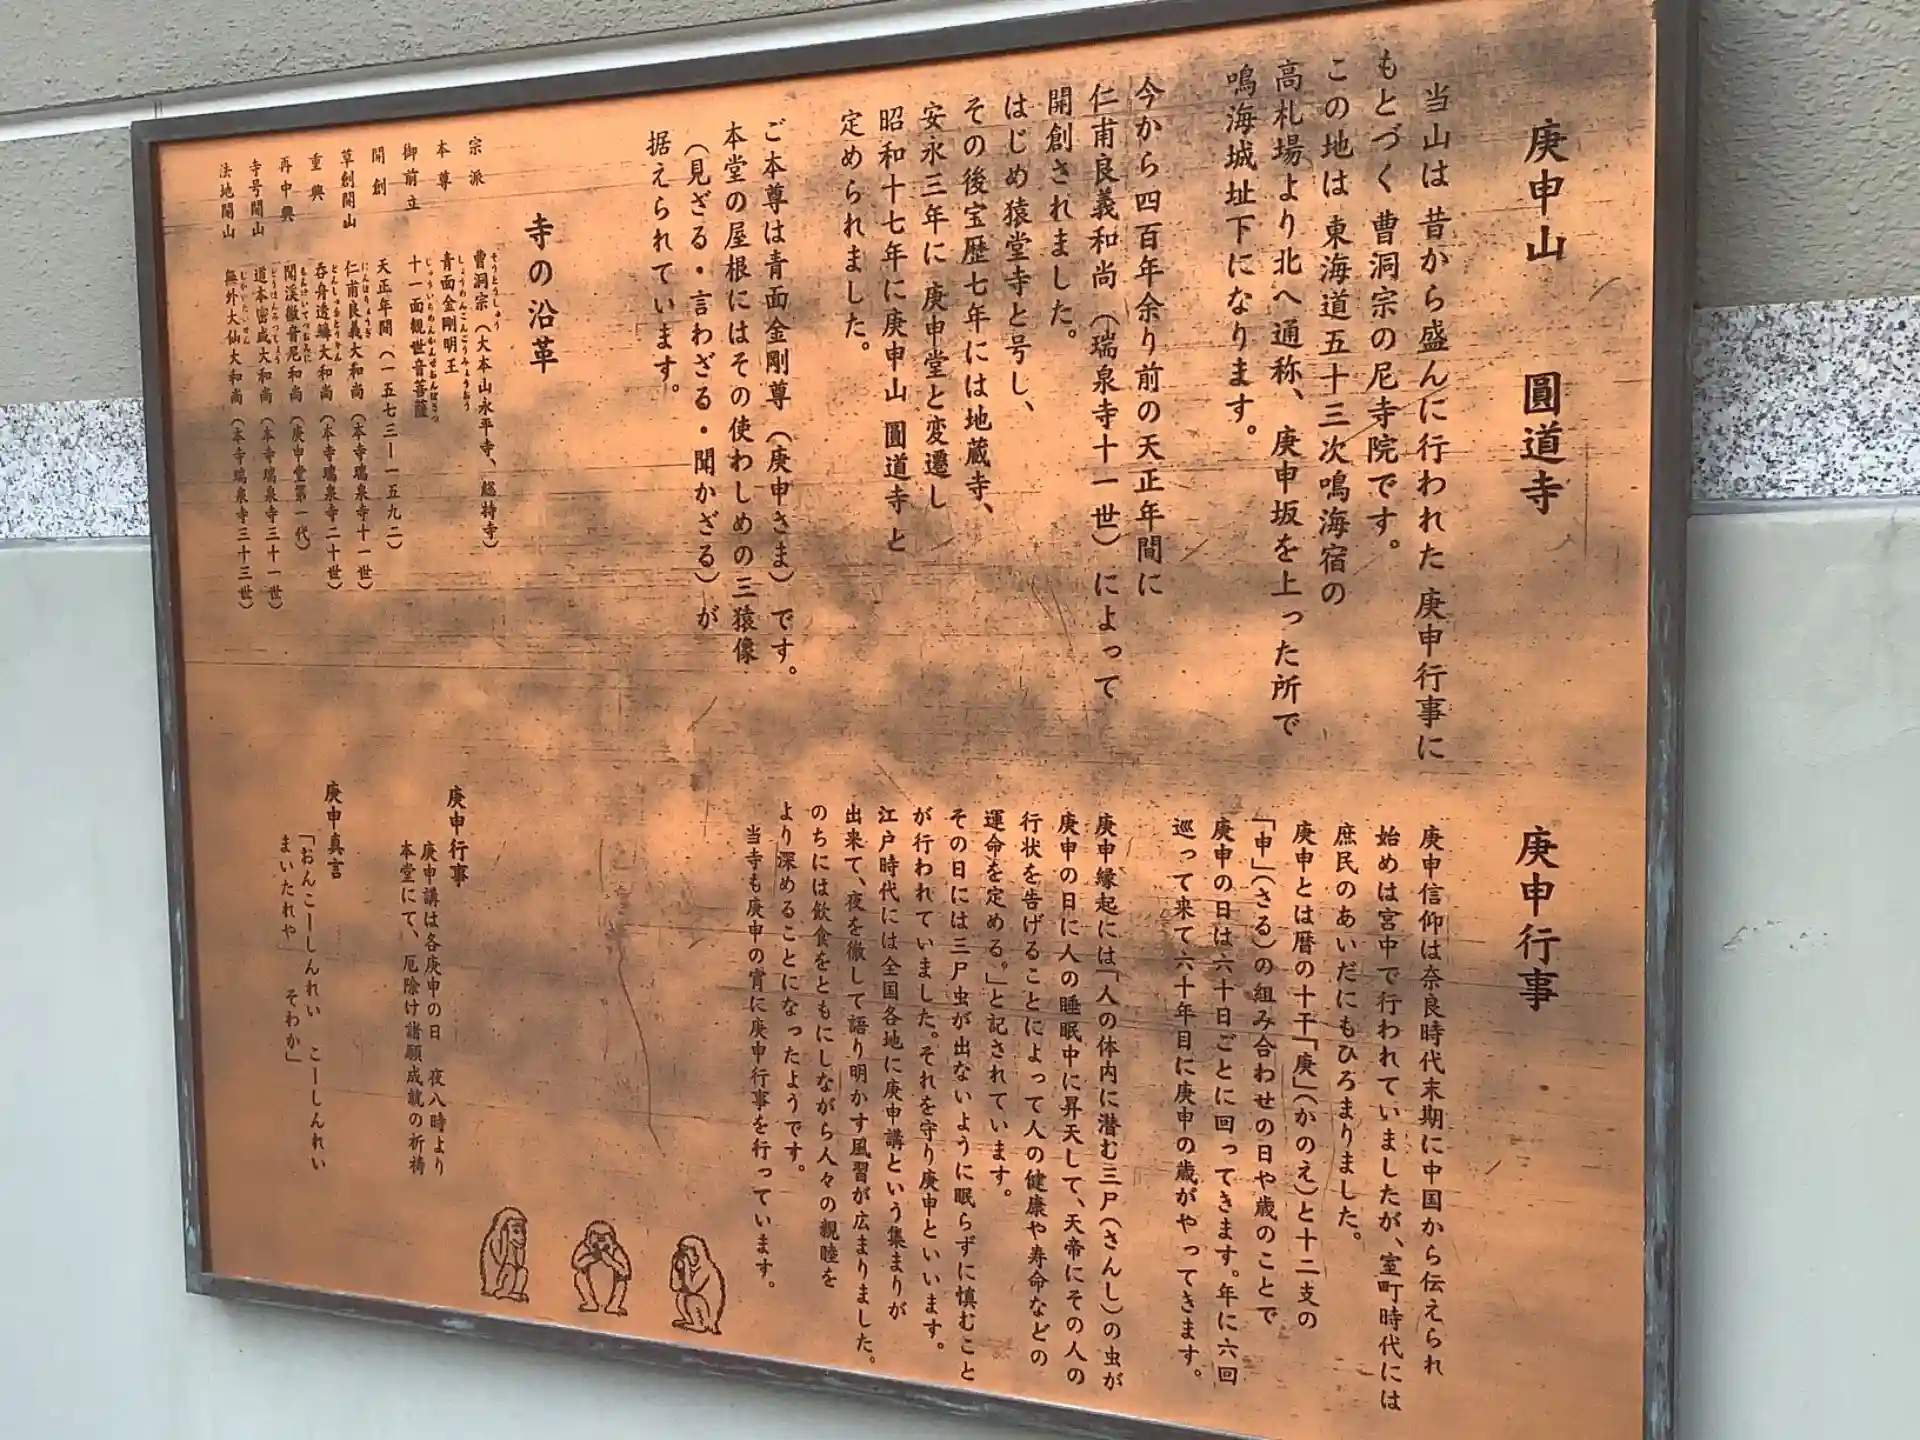 庚申山　圓道寺
当山は昔から盛んに行われた庚申行事に
もとづく曹洞宗の尼寺院です。
この地は東海道五十三次鳴海宿の
高札場より北へ通称、庚申坂を上った所で
鳴海城址下になります。
今から四百年余り前の天正年間に
仁甫良義和尚（瑞泉寺十一世）によって
開創されました。
はじめ猿堂寺と号し、
その後宝歴七年には地蔵寺、
安永三年に庚申堂と変遷し
昭和十七年に庚申山 圓道寺と
定められました。
ご本尊は青面金剛尊（庚申さま）です。
本堂の屋根にはその使わしめの三猿像
（見ざる・言わざる・聞かざる）が
据えられています。
寺の沿革
宗派　曹洞宗（大本山永平寺、総持寺）
本尊　青面金剛明王
御前立　十一面観世音菩薩
開創　天正年間（一五七三ー一五九二）
草創開山　仁甫良義大和尚（本寺瑞泉寺十一世）
重興　呑舟透鱗大和尚（本寺瑞泉寺二十世）
再中興　聞渓徹音尼和尚（庚申堂第一代）
寺号開山　道本密成大和尚（本寺瑞泉寺三十一世）
法地開山　無外大仙大和尚（本寺瑞泉寺三十三世）
庚申行事
庚申信仰は奈良時代末期に中国から伝えられ
始めは宮中で行われていましたが、室町時代には
庶民のあいだにもひろまりました。
庚申とは暦の十干「庚」（かのえ）と十二支の
「申」（さる）の組み合わせの日や歳のことで
庚申の日は六十日ごとに回ってきます。年に六回
巡って来て六十年目に庚申の歳がやってきます。
庚申縁起には「人の体内に潜む三尸（さんし）の虫が
庚申の日に人の睡眠中に昇天して、天帝にその人の
行状を告げることによって人の健康や寿命などの
運命を定める。」と記されています。
その日には三尸虫が出ないように眠らずに慎むこと
が行われていました。それを守り庚申といいます。
江戸時代には全国各地に庚申講という集まりが
出来て、夜を徹して語り明かす風習が広まりました。
のちには飲食をともにしながら人々の親睦を
より深めることになったようです。
当寺も庚申の宵に庚申行事を行っています。
庚申行事
庚申講は各庚申の日　夜八時より
本堂にて、厄除け諸願成就の祈祷
庚申真言
「おんこーしんれい　こーしんれい
まいたれや　そわか」